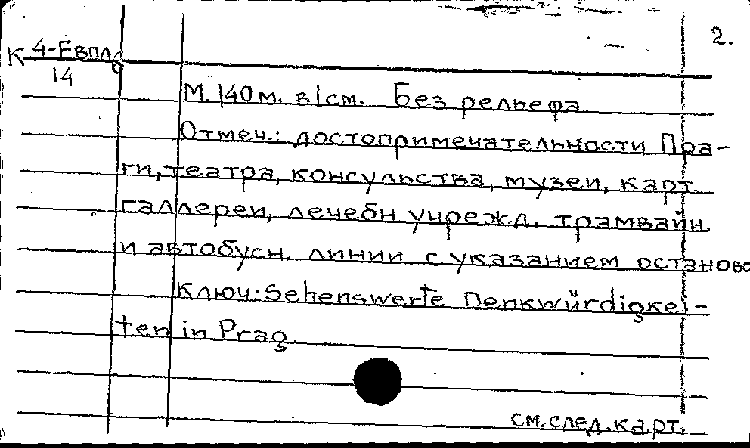 2.
К 4-Евпл
14
М. 140м. в 1см. Без рельефа
Отмеч.: достопримечательности Пра-
ги, театра, консульства, музеи, карт.
галлереи, лечебн учрежд., трамвайн.
и автобусн. линии с указанием останово
Ключ: Sehenswerte Denkwürdigkei-
ten in Prag
см. след. карт.